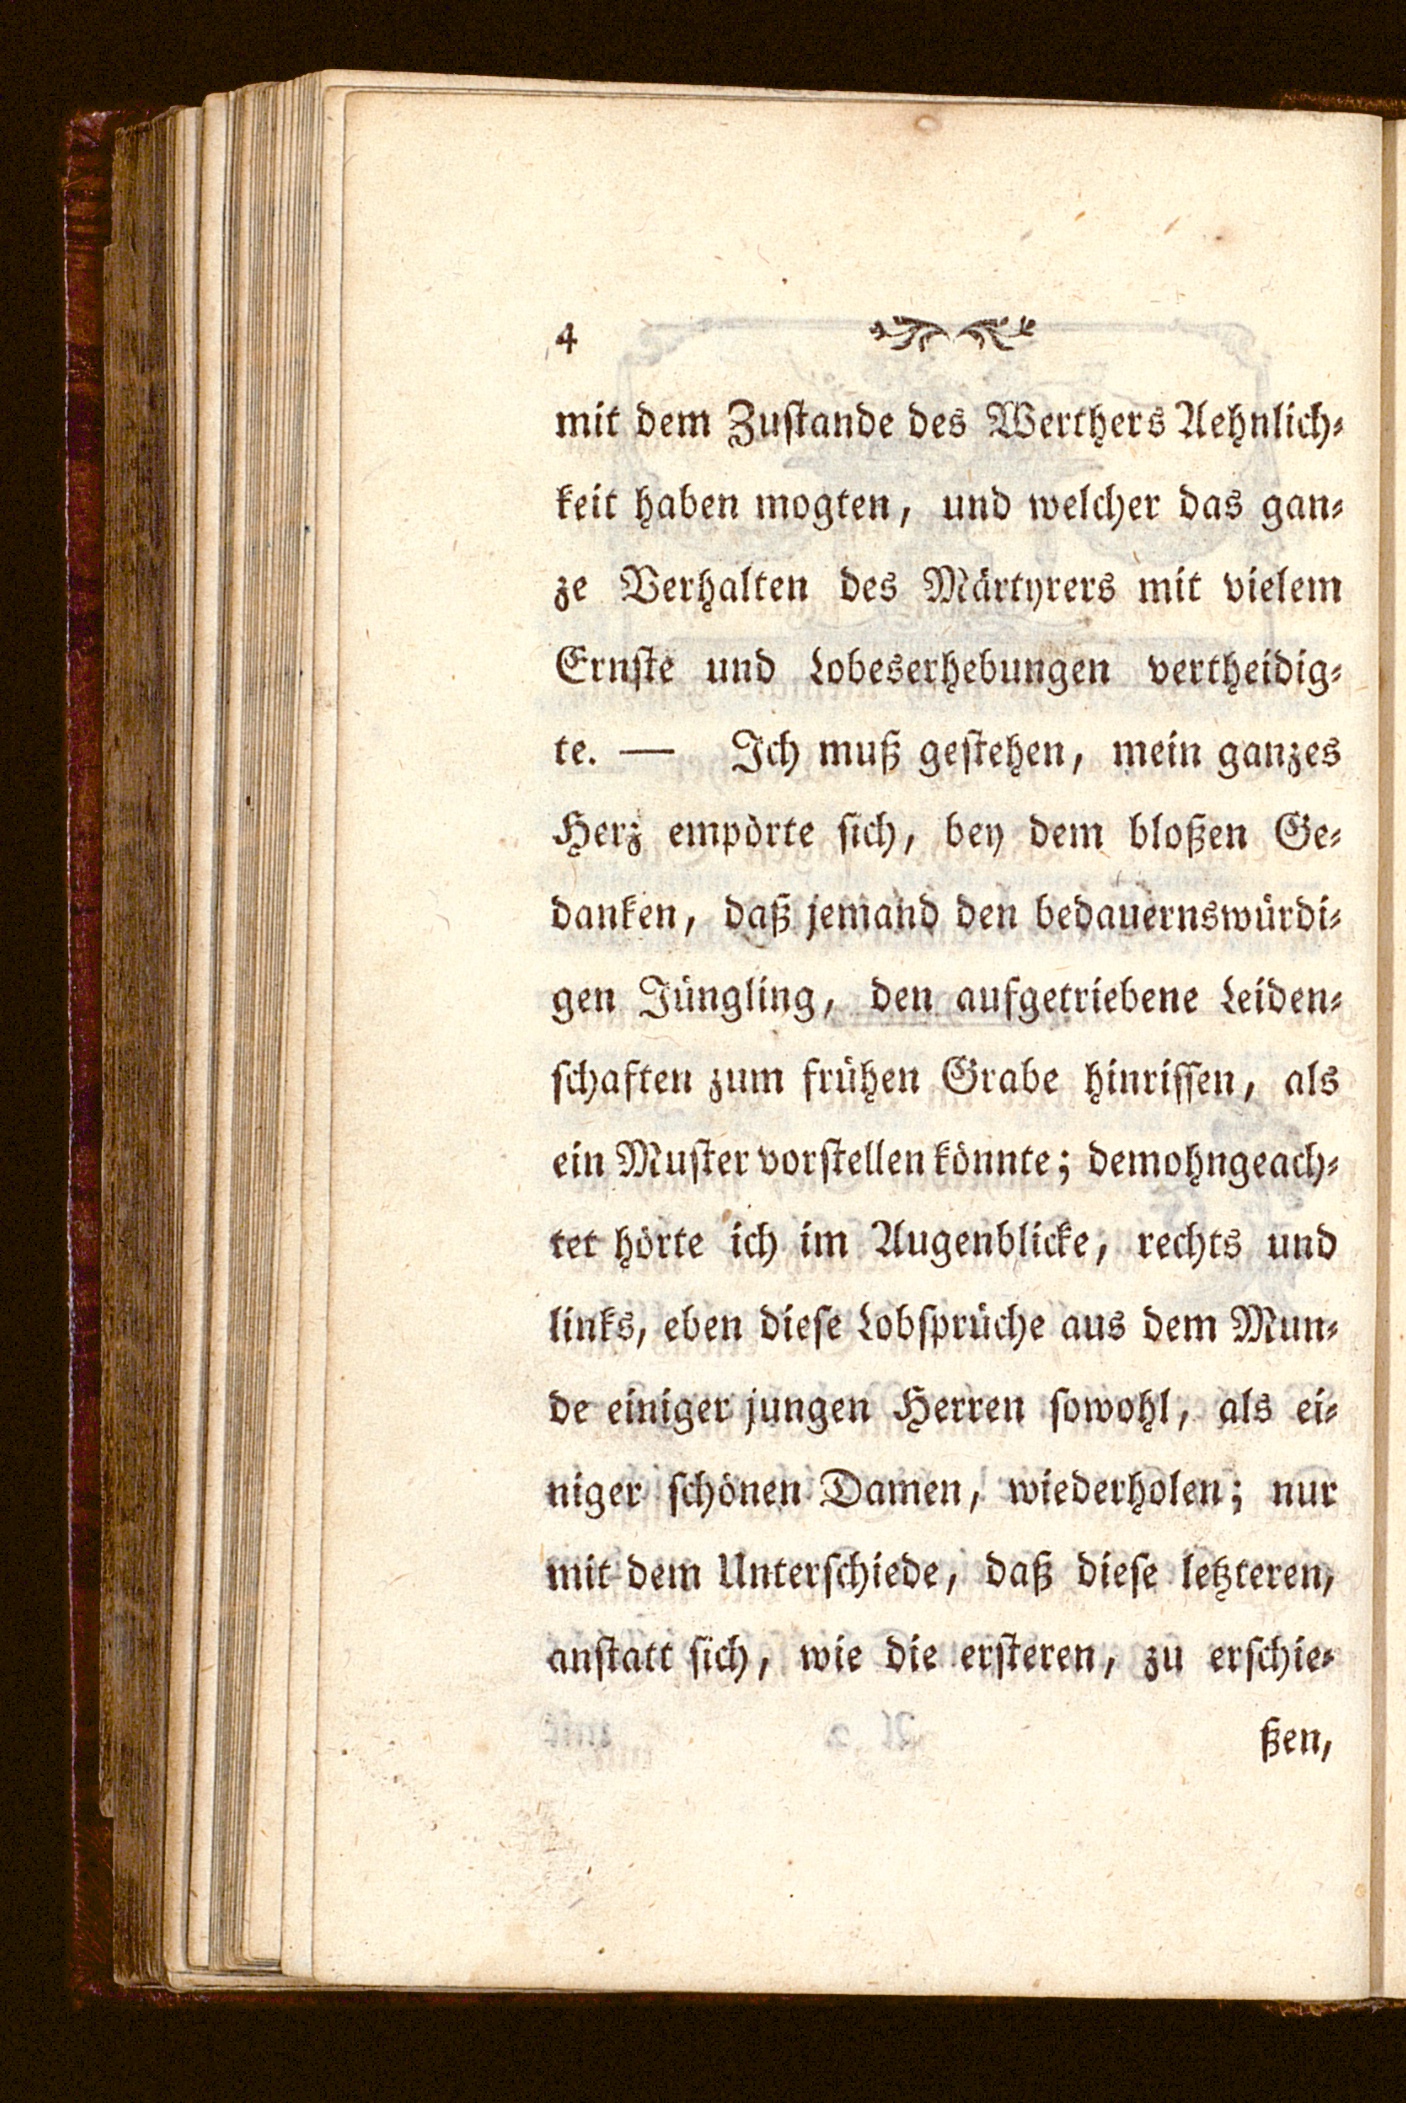 4
mit dem Zustande des Werthers Aehnlich-
keit haben mogten, und welcher das gan-
ze Verhalten des Märtyrers mit vielem
Ernste und Lobeserhebungen vertheidig-
te. — Ich muß gestehen, mein ganzes
Herz empörte sich, bey dem bloßen Ge-
danken, daß jemand den bedauernswürdi-
gen Jüngling, den aufgetriebene Leiden-
schaften zum frühen Grabe hinrissen, als
ein Muster vorstellen könnte; demohngeach-
tet hörte ich im Augenblicke, rechts und
links, eben diese Lobsprüche aus dem Mun-
de einiger jungen Herren sowohl, als ei-
niger schönen Damen, wiederholen; nur
mit dem Unterschiede, daß diese letzteren,
anstatt sich, wie die ersteren, zu erschie-
ßen,